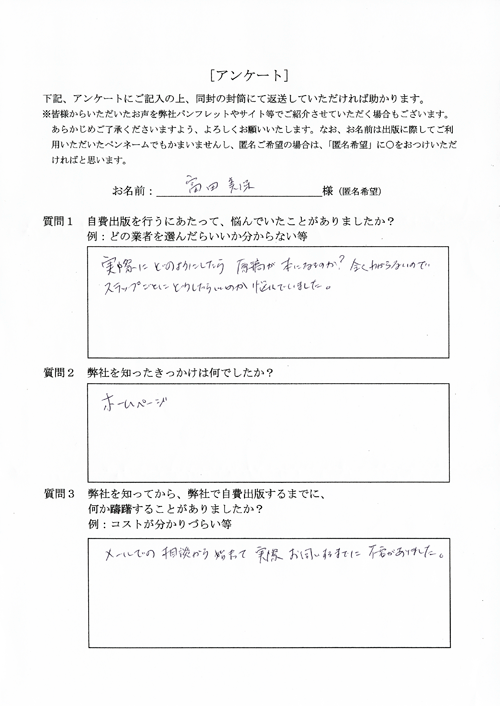 [アンケート]
下記、アンケートにご記入の上、同封の封筒にて返送していただければ助かります。
※皆様からいただいたお声を弊社パンフレットやサイト等でご紹介させていただく場合もございます。
あらかじめご了承くださいますよう、よろしくお願いいたします。なお、お名前は出版に際してご利
用いただいたペンネームでもかまいませんし、匿名ご希望の場合は、「匿名希望」に○をおつけいただ
ければと思います。
お名前：富田 様（匿名希望）
質問１ 自費出版を行うにあたって、悩んでいたことがありましたか？
例：どの業者を選んだらいいか分からない等
実際に どのようにしたら 原稿が 本になるのか？全くわからないので
ステップごとにどうしたらいいのか 悩んでいました。
質問２ 弊社を知ったきっかけは何でしたか？
ホームページ
質問３ 弊社を知ってから、弊社で自費出版するまでに、
何か躊躇することがありましたか？
例：コストが分かりづらい等
メールでの 相談から 始まって 実際 お伺いするまでに 不安がありました。